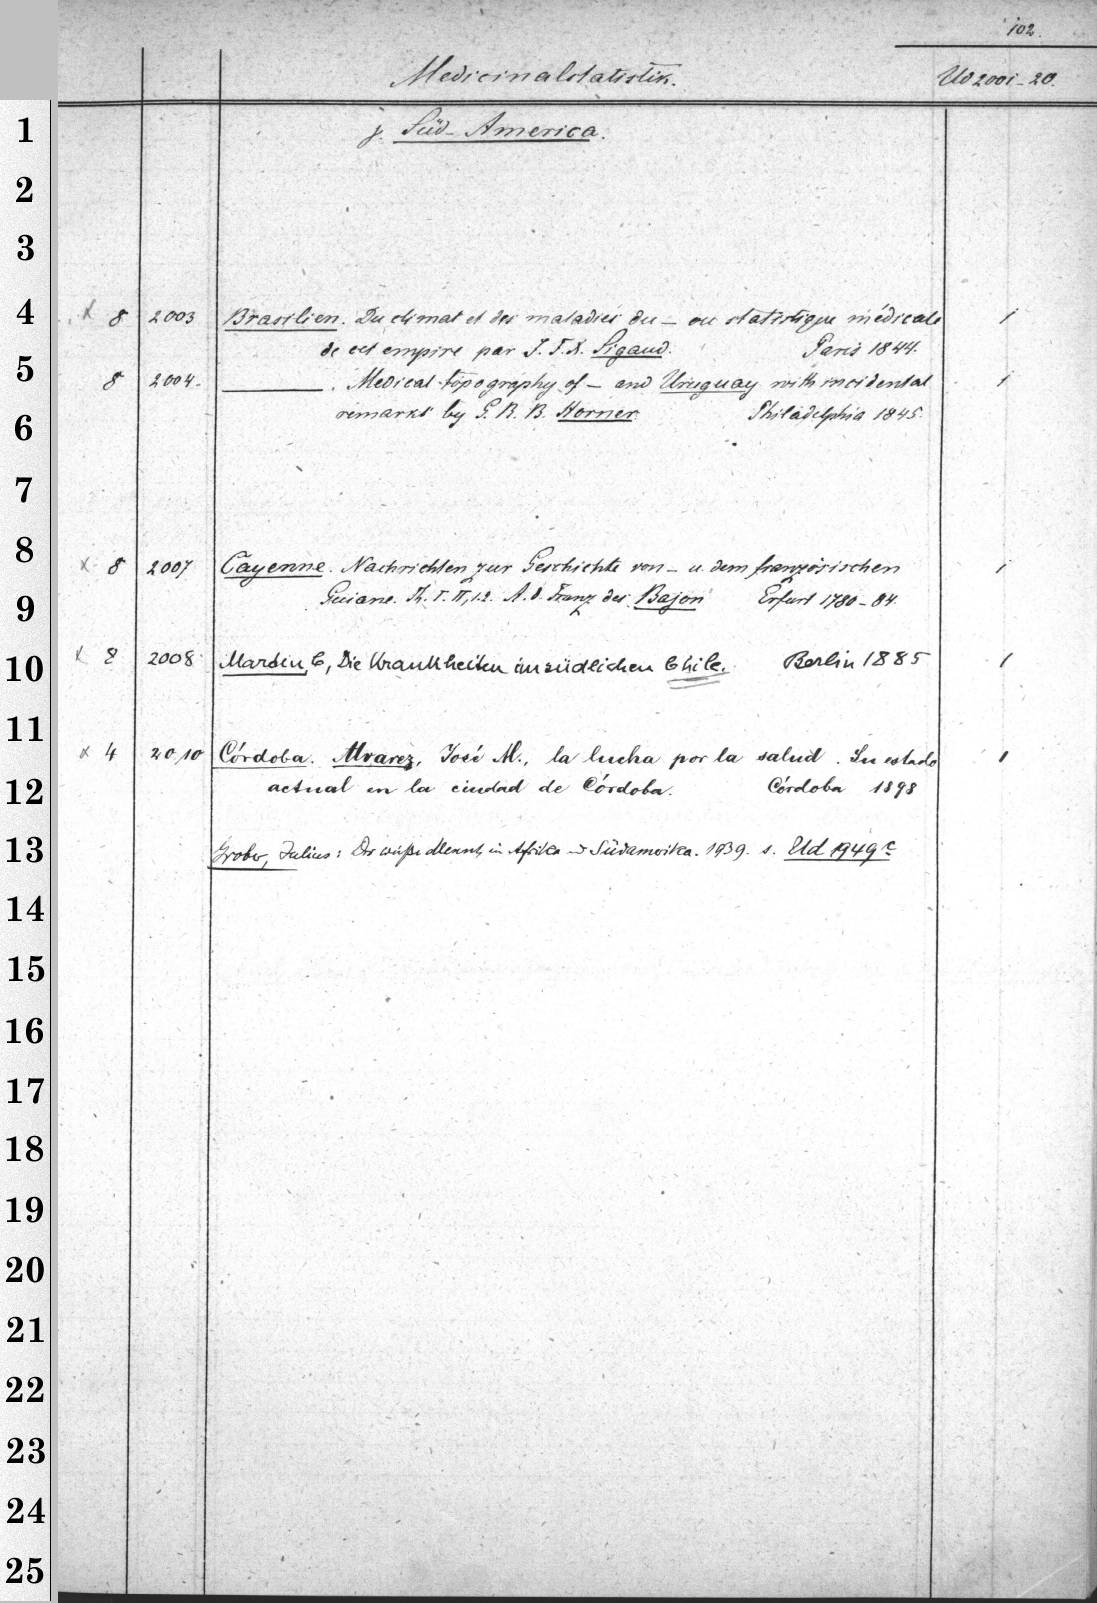 102.
Medicinalstatistik. Ud 2001-20.
j. Süd-America.
1
2
3
4
5
6
7
8
9
10
11
12
13
14
15
16
17
18
19
20
21
22
23
24
25
x 8 2003 Brasilien. Du climat et des maladies du — ou statistique médicale 1
de cet empire par J. F. X. Sigaud. Paris 1844.
8 2004. ———. Medical topography of — and Uruguay with incidental 1
remarks by G. R. B. Horner. Philadelphia 1845.
x 8 2007 Cayenne. Nachrichten zur Geschichte von — u. dem französischen 1
Guiane. Th. I. II, 1.2. A. d. Franz des Bajon Erfurt 1780-84.
x 8 2008 Martin, C, Die Krankheiten im südlichen Chile. Berlin 1885 1
x 4 2010 Córdoba. Alvarez, José M., la lucha por la salud. Su estado 1
actual en la ciudad de Córdoba. Córdoba 1898
Grober, Julius: Der weiße Mensch in Afrika u. Südamerika. 1939. s. Ud 1949 c